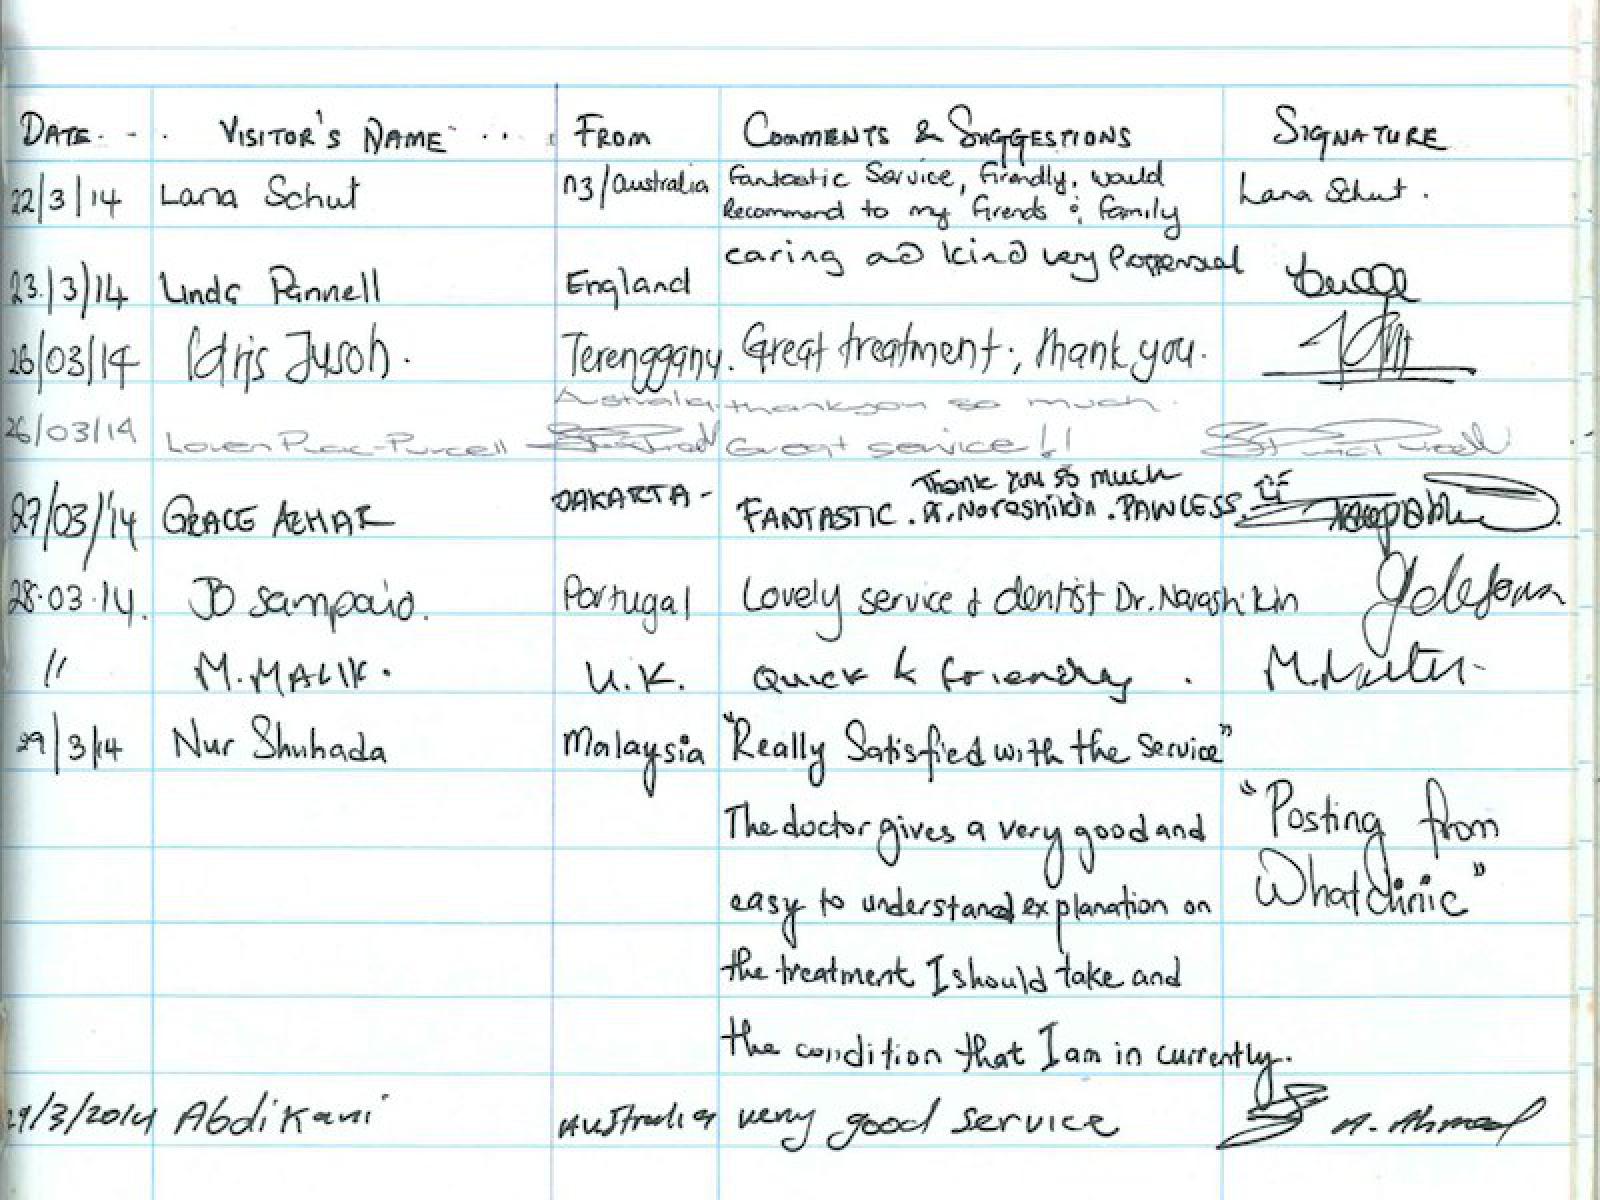 DATE VISITOR'S NAME FROM COMMENTS & SUGGESTIONS SIGNATURE
22/3/14 Lana Schut nz/Australia Fantastic Service, Firendly, would Lana Schut.
Recommend to my firends & family
caring and kind very
23/3/14 Linda Pannell England
26/03/14 Idris Jusoh. Terengganu. Great treatment, thank you.
Australia thankyou so much.
26/03/14 Great service!!
Thank you so much
27/03/14 GRACE AZHAR JAKARTA - FANTASTIC. Dr. Norashikin. PAWLESS.
28.03.14. JO sampaio. Portugal Lovely service & dentist Dr. Norashikin
" M. MALIK. U.K. Quick & friendly.
29/3/14 Nur Shuhada Malaysia "Really Satisfied with the service"
The doctor gives a very good and "Posting from
easy to understand explanation on Whatclinic"
the treatment I should take and
the condition that I am in currently.
29/3/2014 Abdikani Australia very good service A. Ahmed